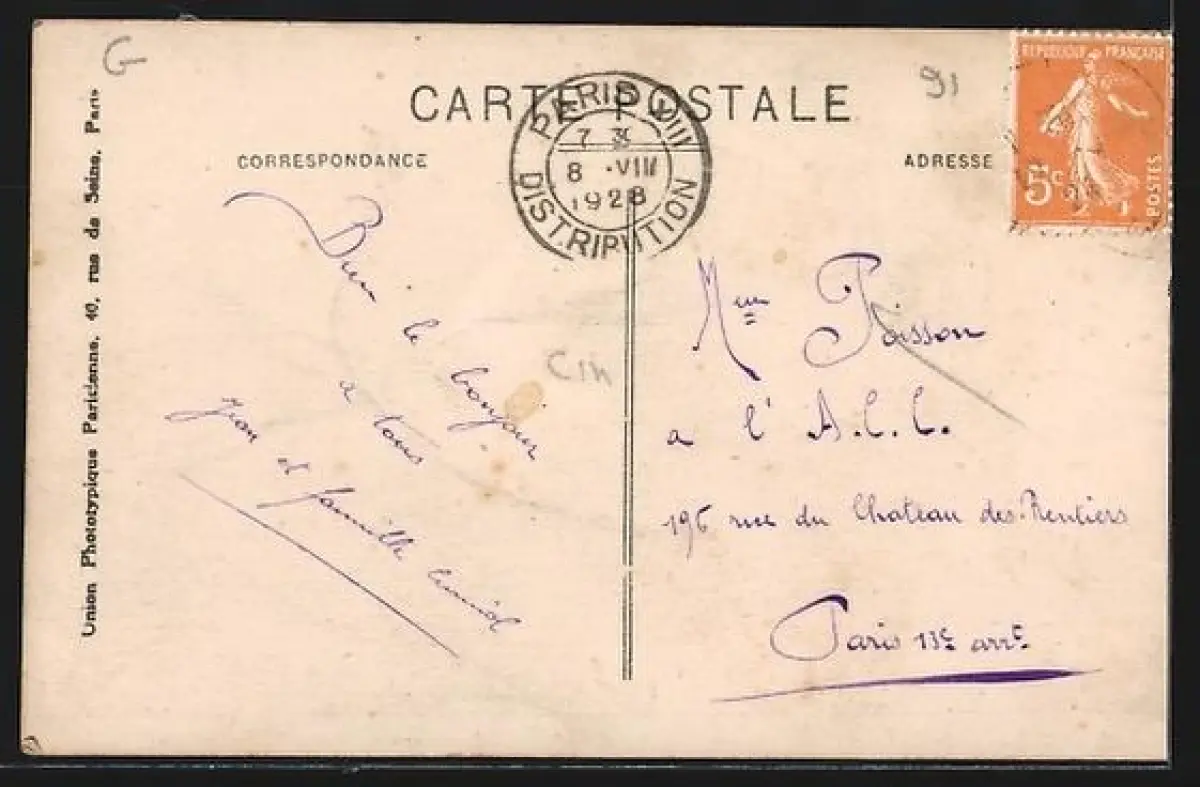 G
91
CARTE POSTALE
CORRESPONDANCE
ADRESSE
PARIS XIII
7 30
8 ·VIII
1928
DISTRIBUTION
REPUBLIQUE FRANÇAISE
5c
POSTES
Union Phototypique Parisienne, 40, rue de Seine, Paris
Bien le bonjour
a tous
Jean et famille
Mme Poisson
a l'A.C.C.
196 rue du Chateau des Rentiers
Paris 13e arrt